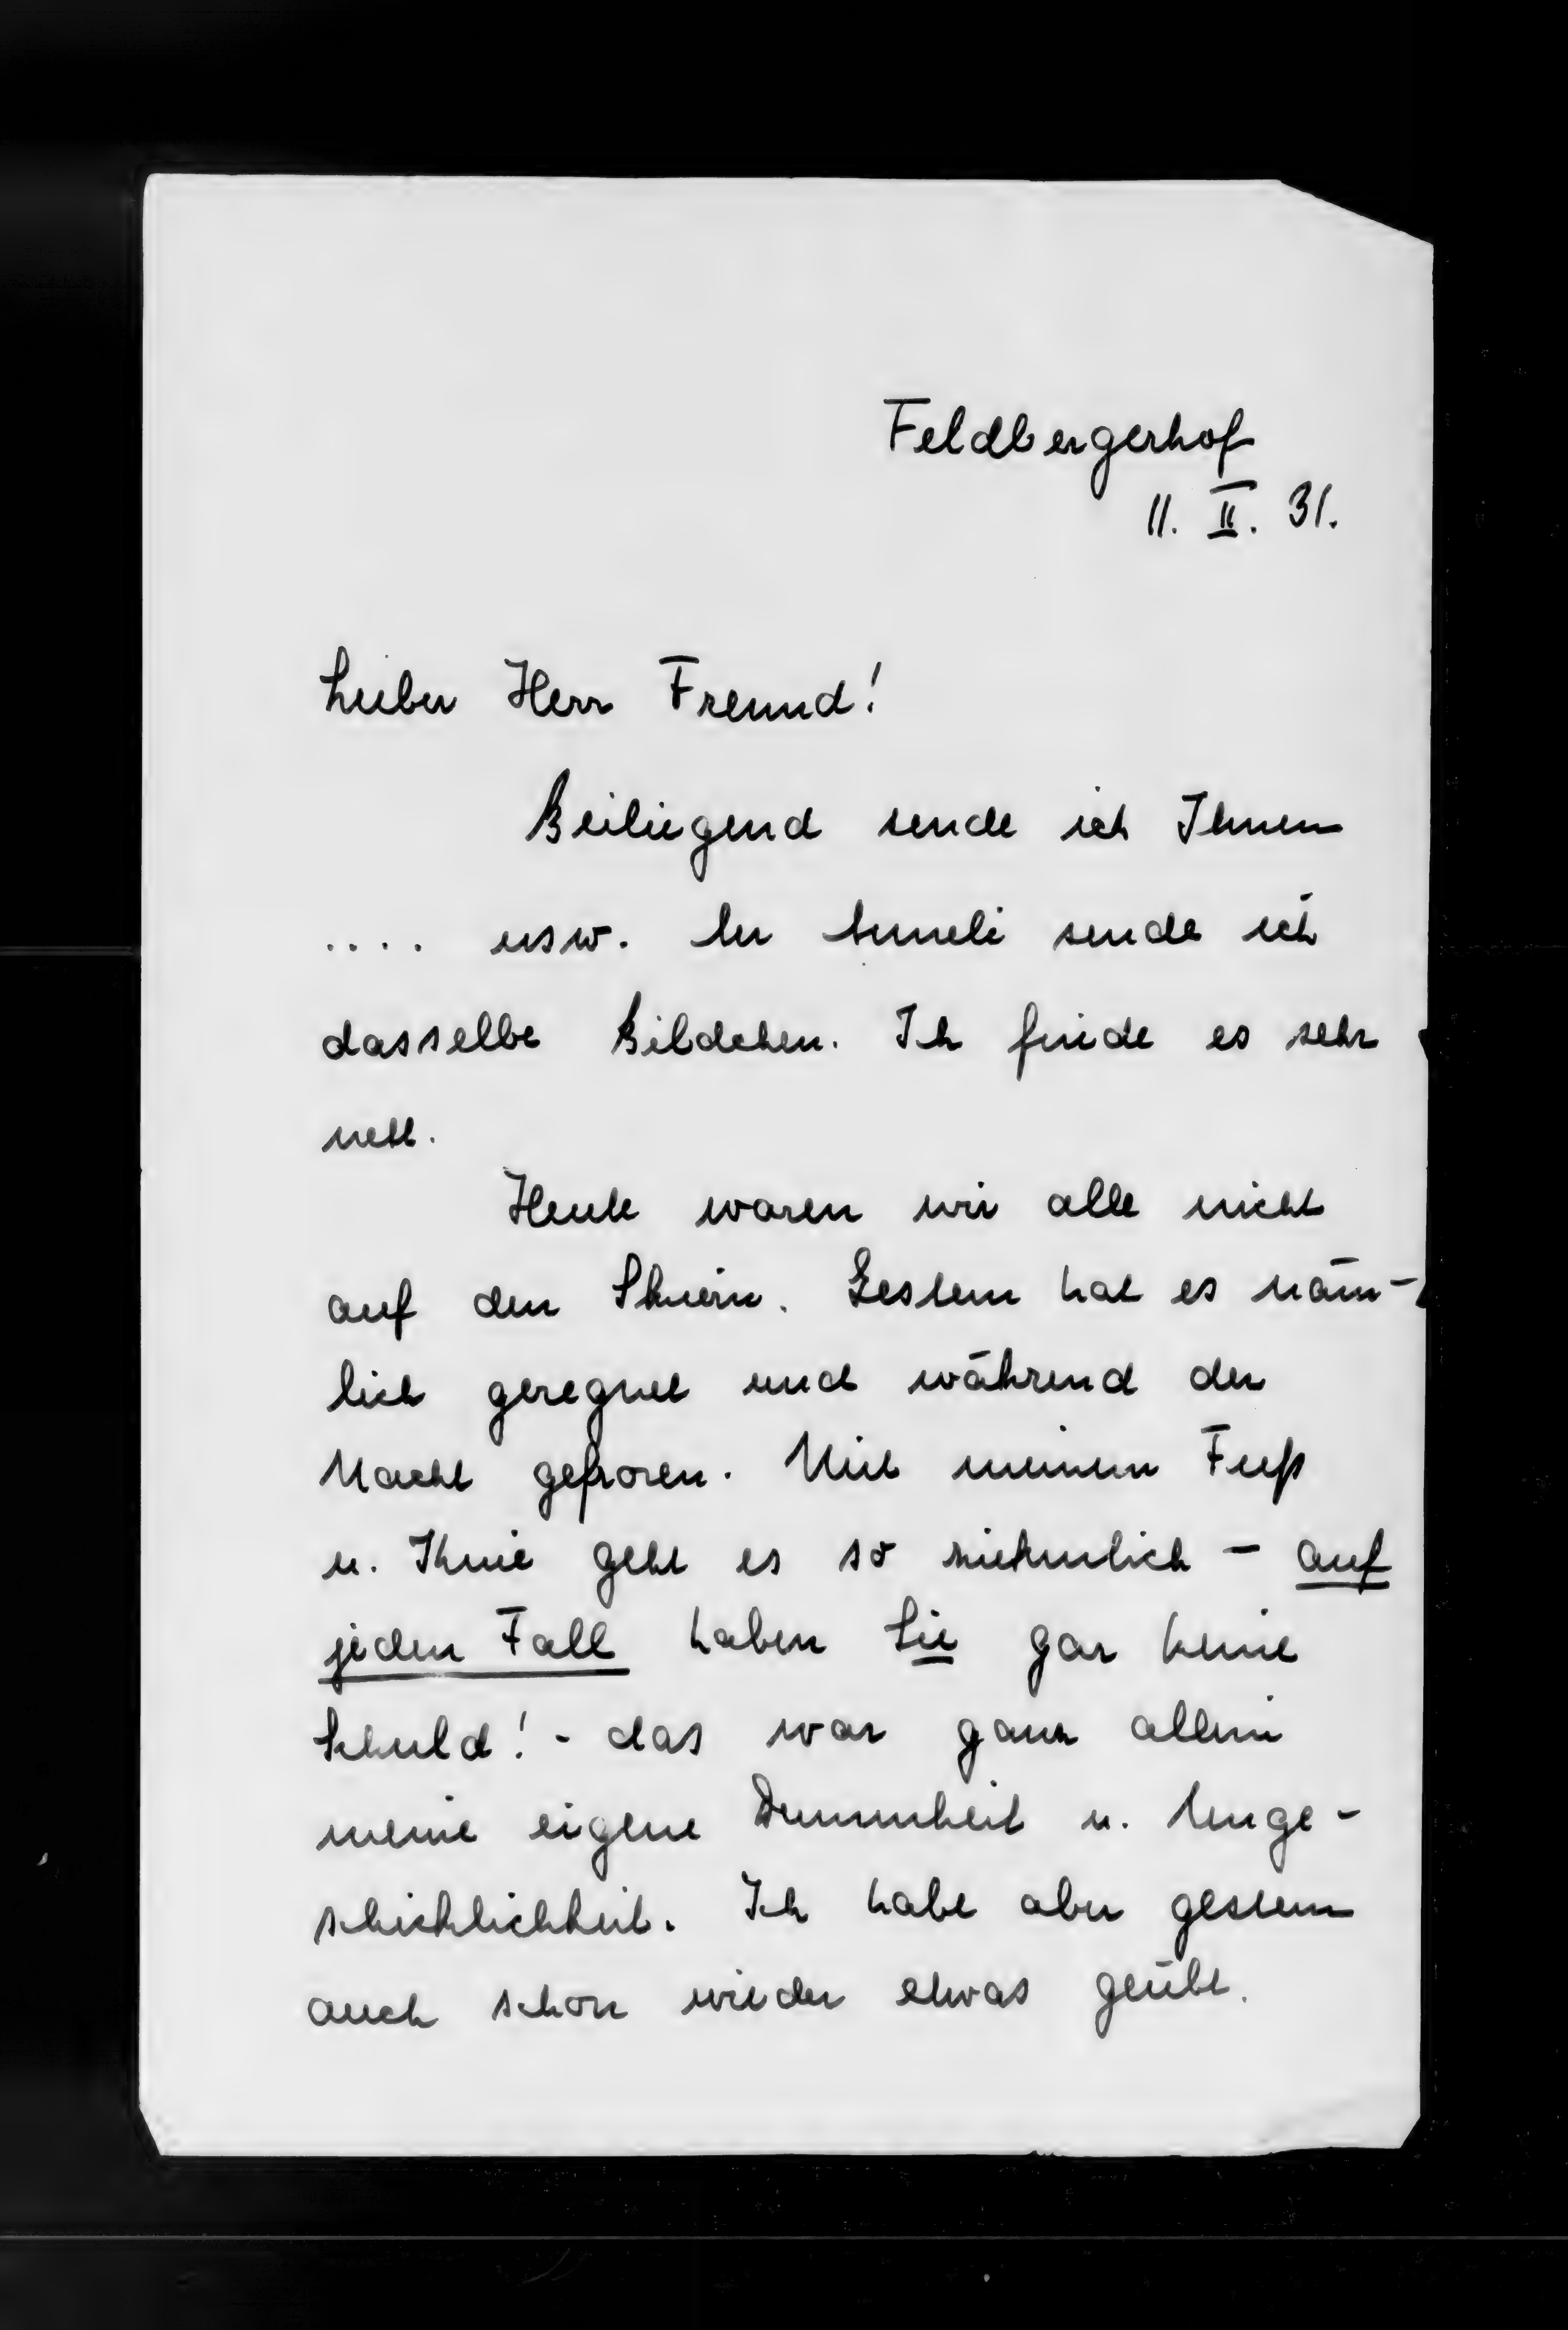 Feldbergerhof
11. II. 31.
Lieber Herr Freund!
Beiliegend sende ich Ihnen
.... usw. An Anneli sende ich
dasselbe Bildchen. Ich finde es sehr
nett.
Heute waren wir alle nicht
auf den Skiern. Gestern hat es näm-
lich geregnet und während der
Nacht gefroren. Mit meinem Fuß
u. Knie geht es so ziehmlich - auf
jeden Fall haben Sie gar keine
Schuld! - das war ganz allein
meine eigene Dummheit u. Unge-
schicklichkeit. Ich habe aber gestern
auch schon wieder etwas geübt.